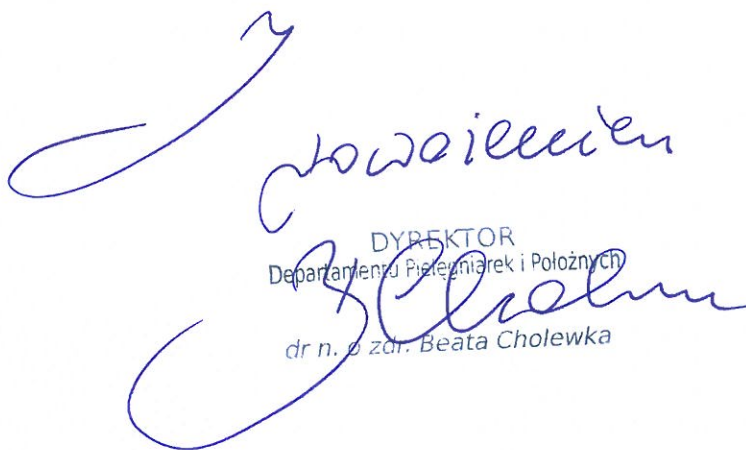 Z poważaniem
DYREKTOR
Departamentu Pielęgniarek i Położnych
dr n. o zdr. Beata Cholewka